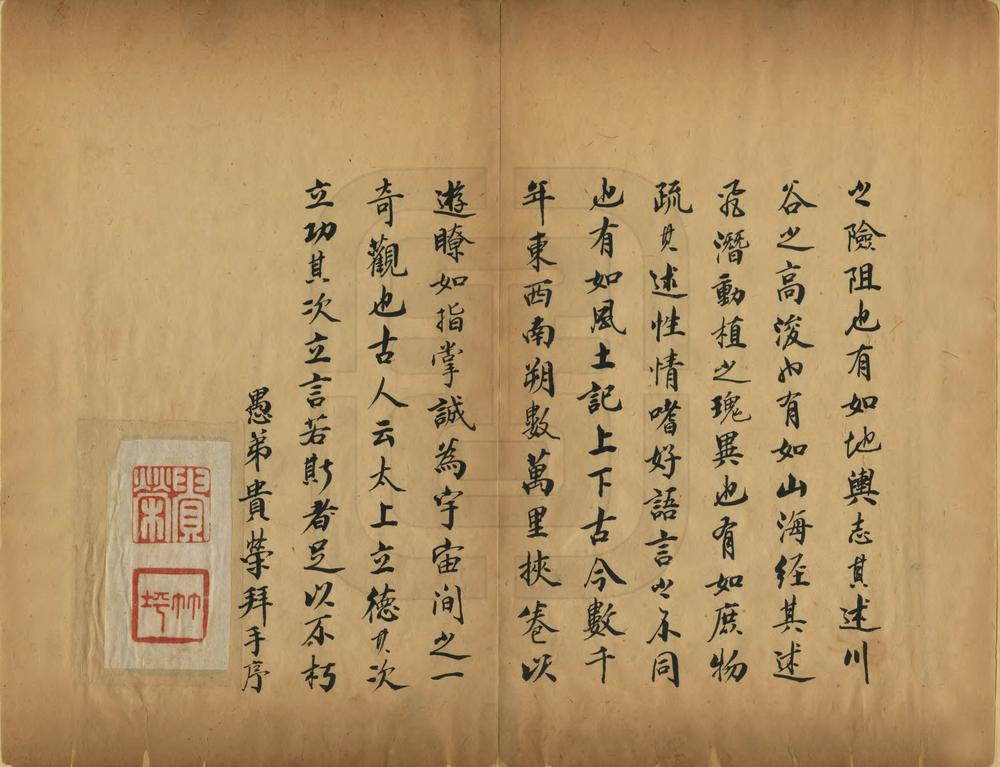 之險阻也有如地輿志其述川
谷之高浚也有如山海经其述
飛潛動植之瑰異也有如庶物
疏其述性情嗜好語言之不同
也有如風土記上下古今數千
年東西南朔數萬里挾卷以
遊瞭如指掌誠為宇宙间之一
奇觀也古人云太上立德其次
立功其次立言若斯者足以不朽
愚弟貴榮拜手序
貴榮
竹坪